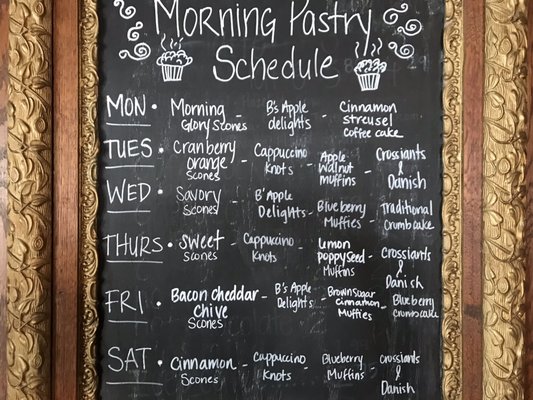 Morning Pastry
Schedule
MON • Morning Glory Scones - B's Apple delights - Cinnamon streusel coffee cake
TUES • Cranberry orange Scones - Cappuccino Knots - Apple Walnut muffins - Crossiants & Danish
WED • Savory Scones - B' Apple Delights - Blueberry Muffies - Traditional Crumbcake
THURS • Sweet Scones - Cappuccino Knots - lemon poppyseed Muffins - Crossiants & Danish
FRI • Bacon Cheddar Chive Scones - B's Apple Delights - Brown Sugar cinnamon Muffies - Blueberry Crumbcake
SAT • Cinnamon Scones - Cappuccino Knots - Blueberry Muffins - Crossiants & Danish